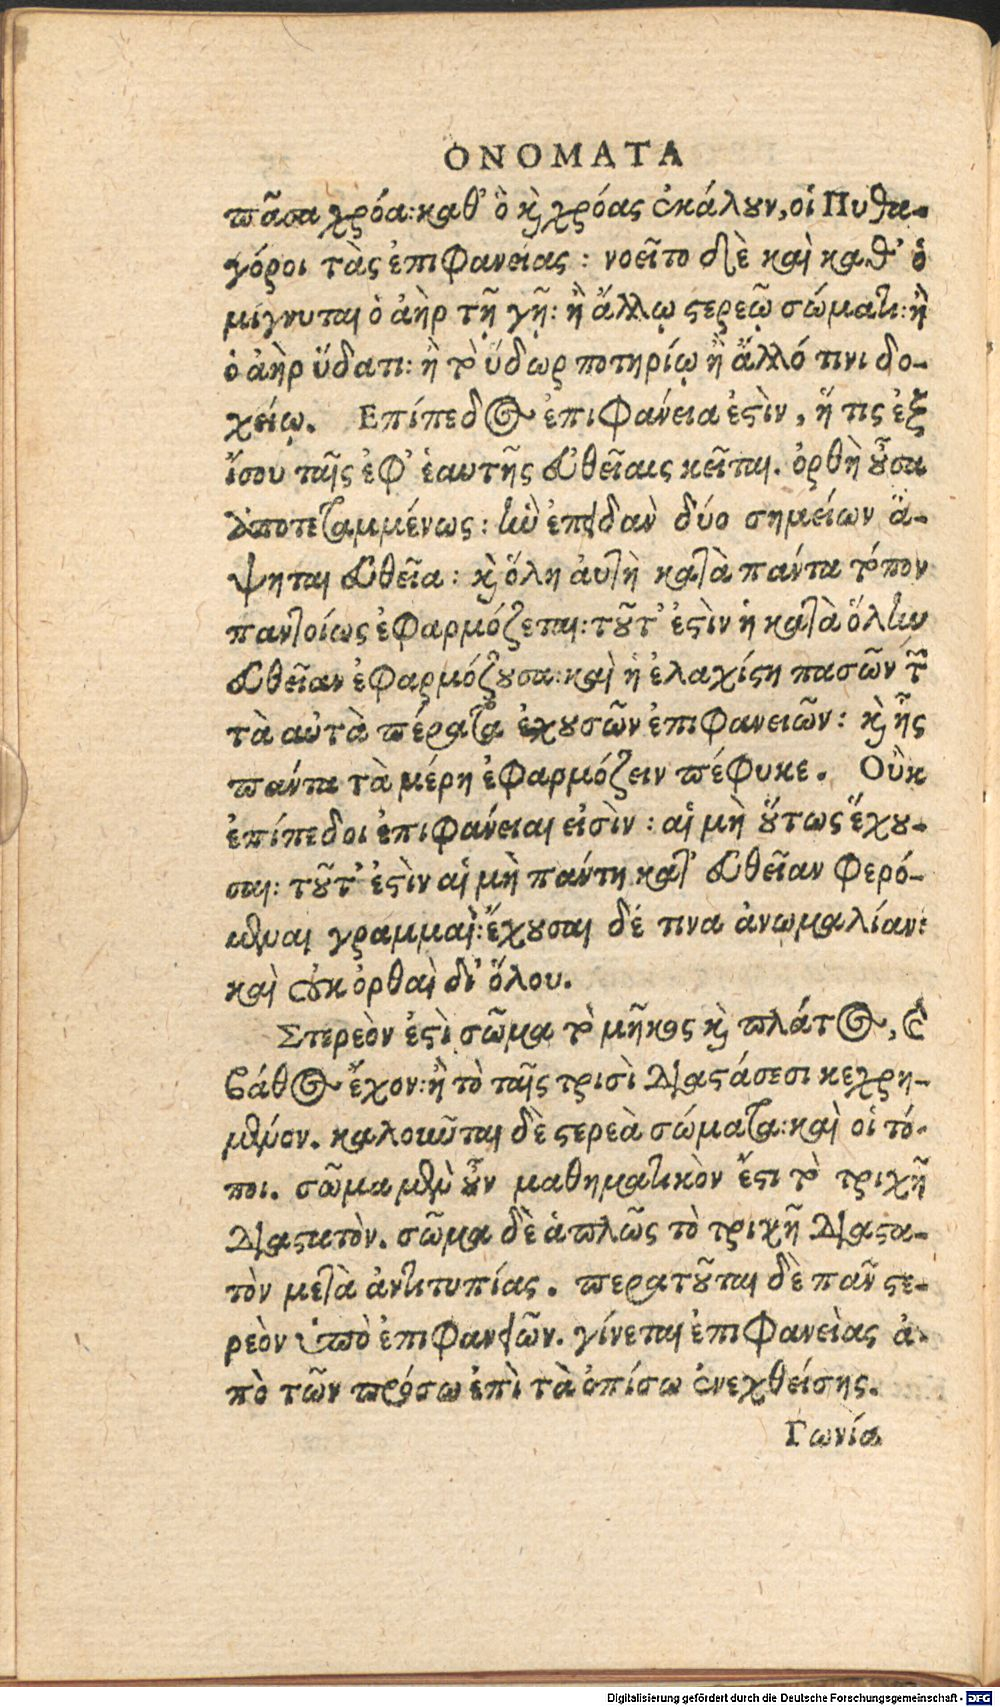 ΟΝΟΜΑΤΑ
πᾶσα χρόα: καθ' ὃ καὶ χρόας ἐκάλουν, οἱ Πυθα-
γόροι τὰς ἐπιφανείας: νοεῖτο δὲ καὶ καθ' ὃ
μίγνυται ὁ ἀὴρ τῇ γῇ: ἢ ἄλλῳ στερεῷ σώματι: ἢ
ὁ ἀὴρ ὕδατι: ἢ τὸ ὕδωρ ποτηρίῳ ἢ ἄλλό τινι δο-
χείῳ. Επίπεδος ἐπιφάνεια ἐστὶν, ἥ τις ἐξ
ἴσου ταῖς ἐφ' ἑαυτῆς εὐθείαις κεῖται. ὀρθὴ οὖσα
ἀποτεταμμένως: ἣν ἐπειδὰν δύο σημείων ἅ-
ψηται εὐθεῖα: καὶ ὅλη ἀυτὴ κατὰ πάντα τόπον
παντοίως ἐφαρμόζεται: τοῦτ' ἐστὶν ἡ κατὰ ὅλην
εὐθεῖαν ἐφαρμόζουσα: καὶ ἡ ἐλαχίστη πασῶν τῶν
τὰ αὐτὰ πέρατα ἐχουσῶν ἐπιφανειῶν: καὶ ἧς
πάντα τὰ μέρη ἐφαρμόζειν πέφυκε. Οὒκ
ἐπίπεδοι ἐπιφάνειαι εἰσὶν: αἱ μὴ οὕτως ἔχου-
σαι: τοῦτ' ἐστὶν αἱ μὴ πάντη κατ' εὐθεῖαν φερό-
μεναι γραμμαὶ: ἔχουσαι δέ τινα ἀνωμαλίαν:
καὶ οὐκ ὀρθαὶ δι' ὅλου.
Στερεὸν ἐστὶ σῶμα τὸ μῆκος καὶ πλάτος, καὶ
βάθος ἔχον: ἢ τὸ ταῖς τρισὶ διαστάσεσι κεχρη-
μένον. καλοιῶται δὲ στερεὰ σώματα: καὶ οἱ τό-
ποι. σῶμα μὲν οὖν μαθηματικὸν ἔστι τὸ τριχῆ
διαστατὸν. σῶμα δὲ ἁπλῶς τὸ τριχῆ διαστα-
τὸν μετὰ ἀντιτυπίας. περατοῦται δὲ πᾶν στε-
ρεὸν ὑπὸ ἐπιφανειῶν. γίνεται ἐπιφανείας ἀ-
πὸ τῶν πρόσω ἐπὶ τὰ ὀπίσω ἐνεχθείσης.
Γωνία
Digitalisierung gefördert durch die Deutsche Forschungsgemeinschaft - DFG